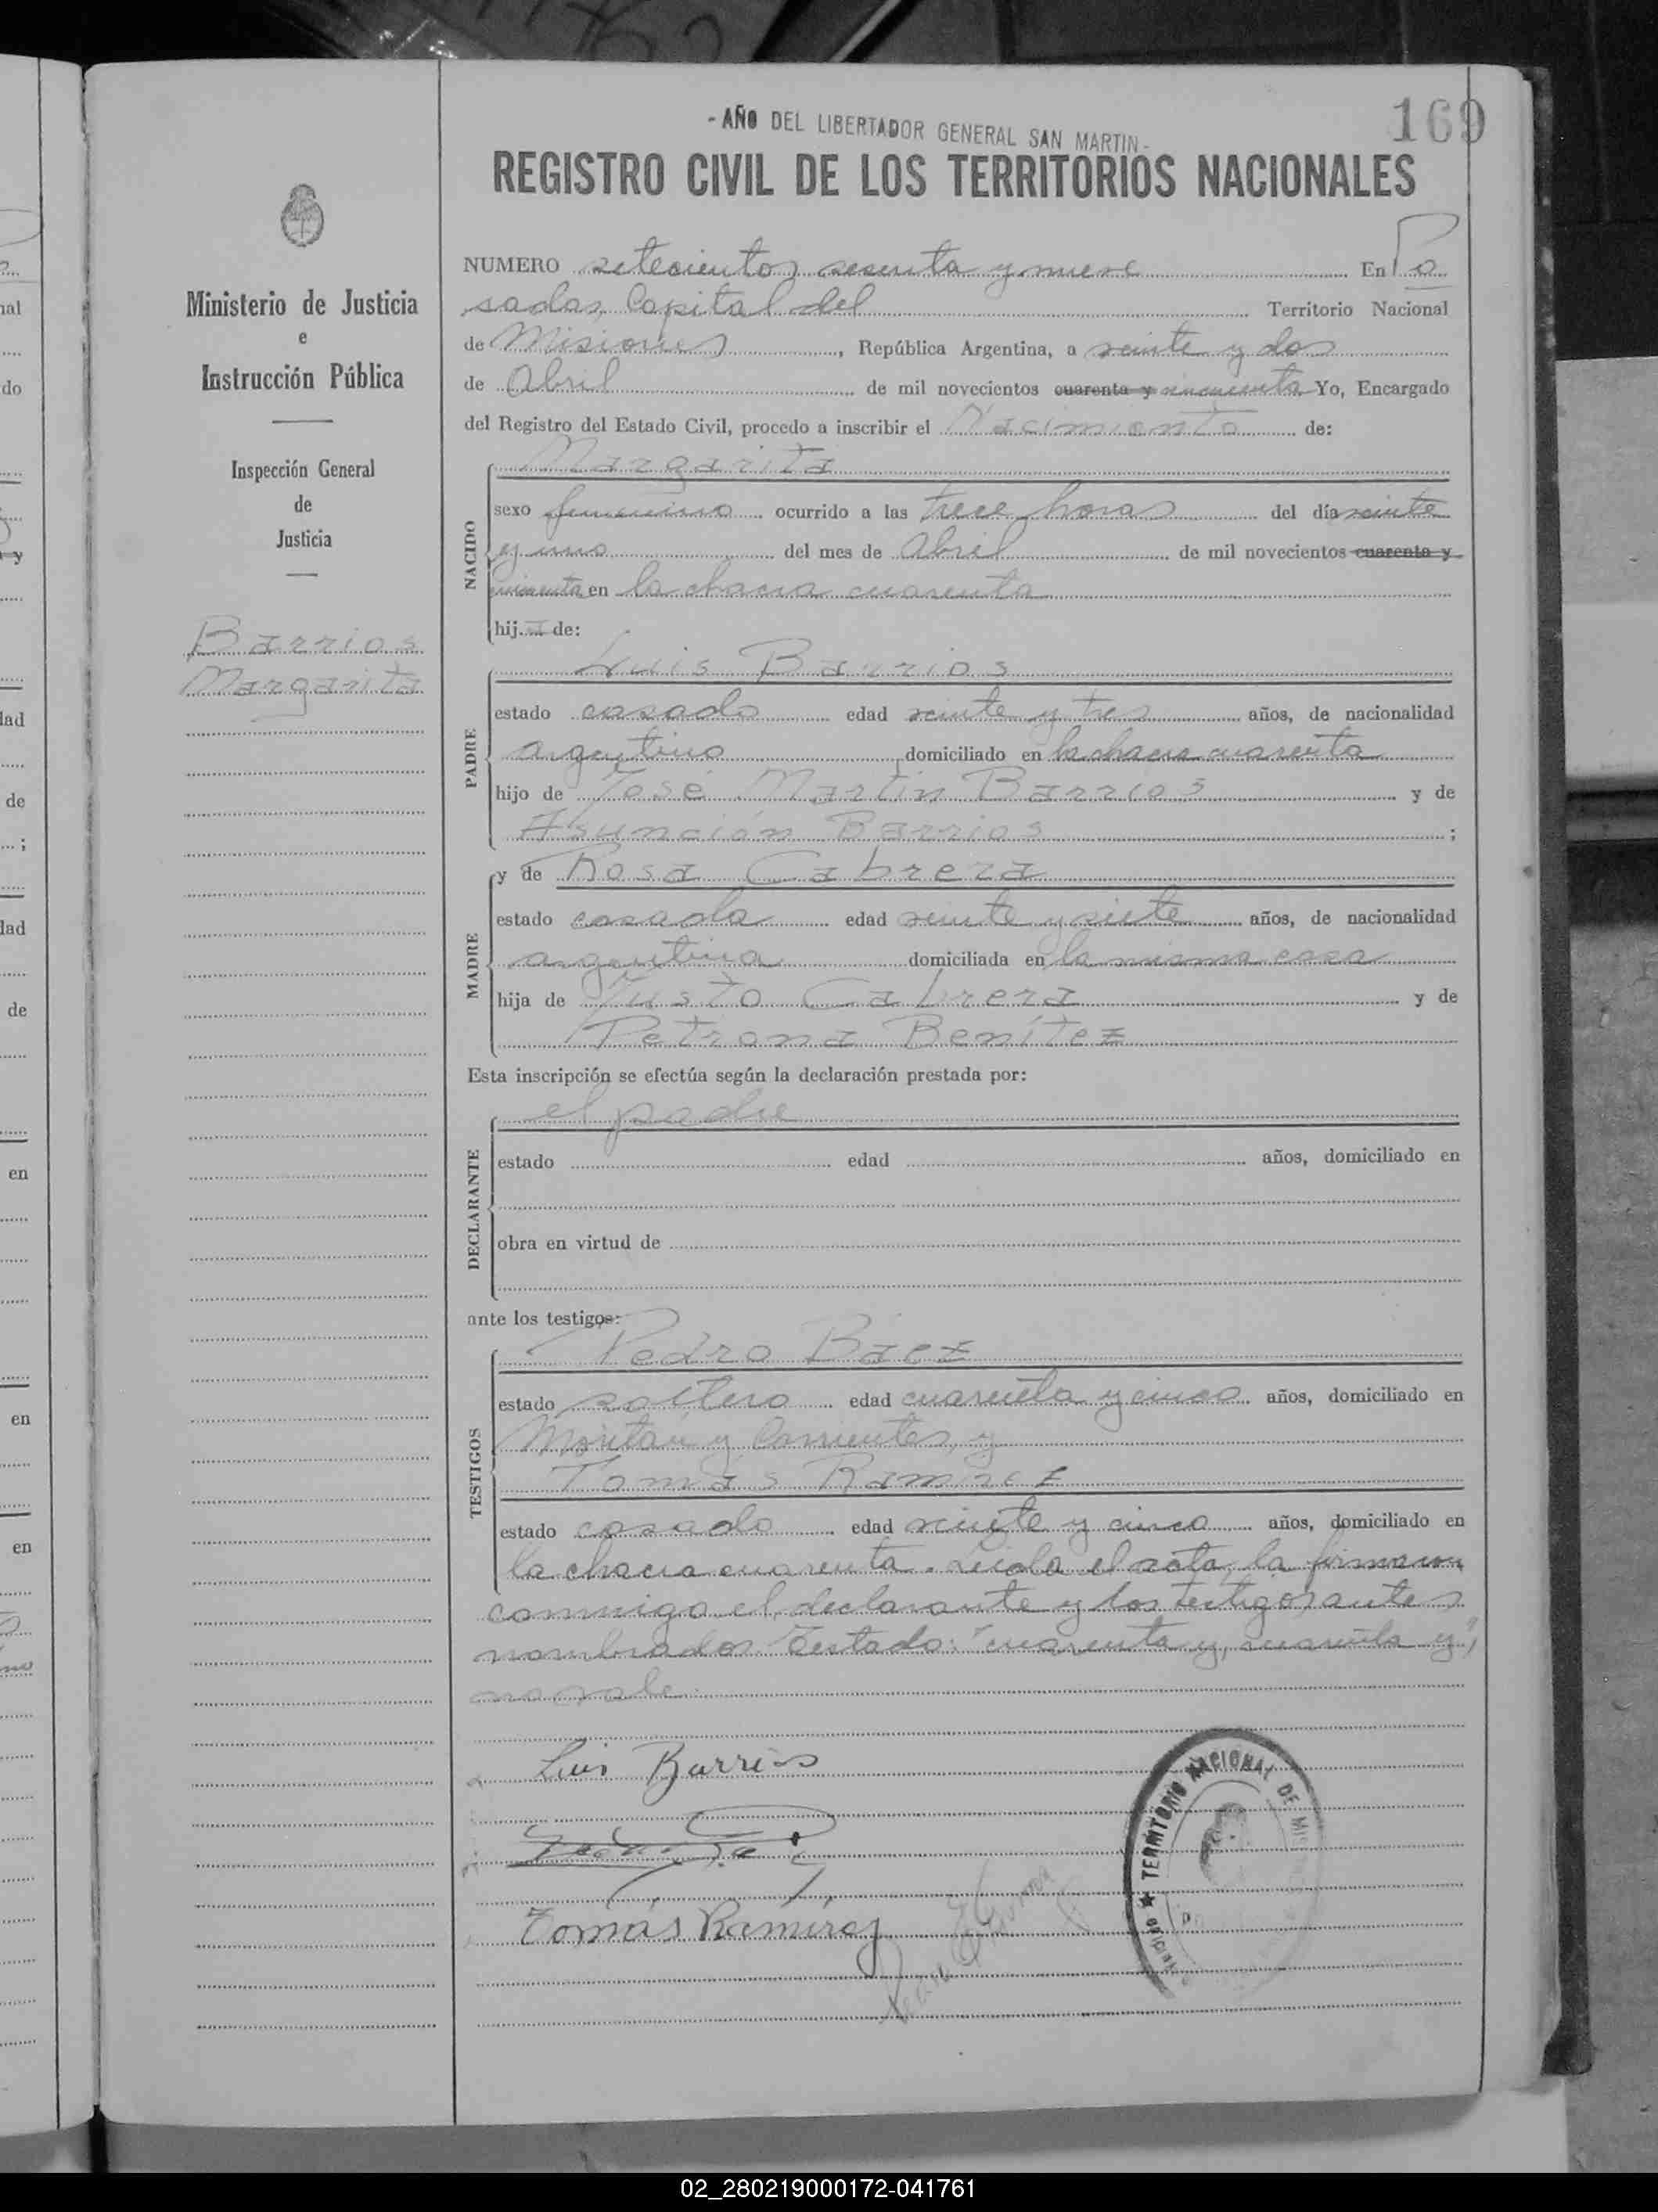 169
- AÑO DEL LIBERTADOR GENERAL SAN MARTIN -
REGISTRO CIVIL DE LOS TERRITORIOS NACIONALES
Ministerio de Justicia
e
Instrucción Pública
Inspección General
de
Justicia
Barrios
Margarita
NUMERO setecientos sesenta y nueve En Po
sadas, Capital del Territorio Nacional
de Misiones, República Argentina, a veinte y dos
de Abril de mil novecientos cuarenta y cincuenta Yo, Encargado
del Registro del Estado Civil, procedo a inscribir el Nacimiento de:
NACIDO
Margarita
sexo femenino ocurrido a las trece horas del día veinte
y uno del mes de Abril de mil novecientos cuarenta y
cincuenta en la chacra cuarenta
hija de:
PADRE
Luis Barrios
estado casado edad veinte y tres años, de nacionalidad
argentino domiciliado en la chacra cuarenta
hijo de José Martín Barrios y de
Asunción Barrios ;
MADRE
y de Rosa Cabrera
estado casada edad veinte y siete años, de nacionalidad
argentina domiciliada en la misma casa
hija de Justo Cabrera y de
Petrona Benítez
Esta inscripción se efectúa según la declaración prestada por:
DECLARANTE
el padre
estado edad años, domiciliado en
obra en virtud de
ante los testigos:
TESTIGOS
Pedro Baez
estado soltero edad cuarenta y cinco años, domiciliado en
y Corrientes, y
Tomás Ramirez
estado casado edad veinte y cinco años, domiciliado en
la chacra cuarenta. Leida el acta, la firmaron
conmigo el declarante y los testigos antes
nombrados. Testado: "cuarenta y, cuarenta y",
no vale.
Luis Barrios
Tomás Ramirez
TERRITORIO NACIONAL DE MIS
02_280219000172-041761